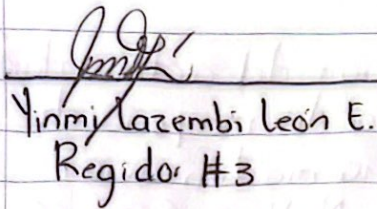 Yinmi Lazembi León E.
Regidor #3